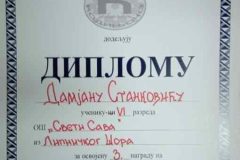 додељују
ДИПЛОМУ
Дамјану Станковићу
ученику-ци VI разреда
ОШ „Свети Сава"
из Липничког Шора
за освојену 3. награду на